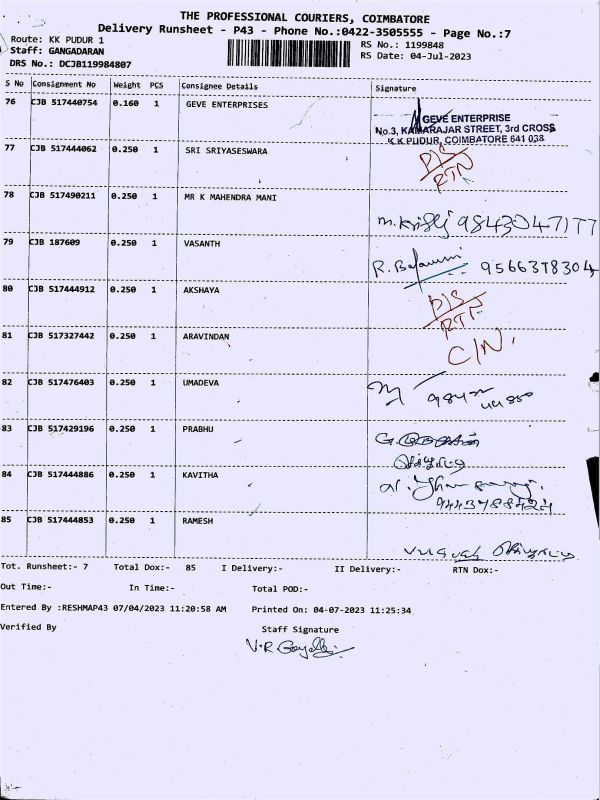 THE PROFESSIONAL COURIERS, COIMBATORE
Delivery Runsheet - P43 - Phone No.:0422-3505555 - Page No.:7
Route: KK PUDUR 1
RS No.: 1199848
Staff: GANGADARAN
RS Date: 04-Jul-2023
DRS No.: DCJB119984807
S No Consignment No Weight PCS Consignee Details Signature
76 CJB 517440754 0.160 1 GEVE ENTERPRISES
GEVE ENTERPRISE
No.3, KAMARAJAR STREET, 3rd CROSS
K.K.PUDUR, COIMBATORE 641 038
77 CJB 517444062 0.250 1 SRI SRIYASESWARA
D/S
RTN
78 CJB 517490211 0.250 1 MR K MAHENDRA MANI
9843047177
79 CJB 187609 0.250 1 VASANTH
9566378304
80 CJB 517444912 0.250 1 AKSHAYA
D/S
RTN
81 CJB 517327442 0.250 1 ARAVINDAN
C/N.
82 CJB 517476403 0.250 1 UMADEVA
83 CJB 517429196 0.250 1 PRABHU
84 CJB 517444886 0.250 1 KAVITHA
85 CJB 517444853 0.250 1 RAMESH
Tot. Runsheet:- 7 Total Dox:- 85 I Delivery:- II Delivery:- RTN Dox:-
Out Time:- In Time:- Total POD:-
Entered By :RESHMAP43 07/04/2023 11:20:58 AM Printed On: 04-07-2023 11:25:34
Verified By Staff Signature